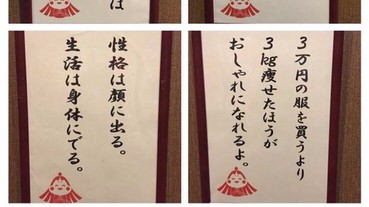 は
性格は顔に出る。
生活は身体にでる。
3万円の服を買うより
3㎏痩せたほうが
おしゃれになれるよ。